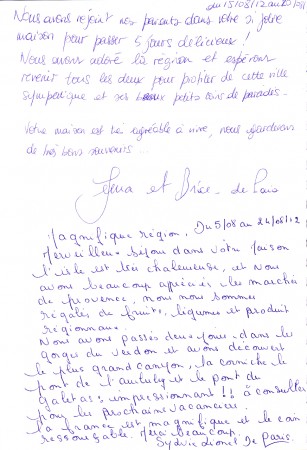 du 15/08/12 au 20/08
Nous avons rejoint nos parents dans votre si jolie
maison pour passer 5 jours délicieux !
Nous avons adoré la région et espérons
revenir tous les deux pour profiter de cette ville
sympathique et ses beaux petits coins de paradis...
Votre maison est très agréable à vivre, nous garderons
de très bons souvenirs...
et de Paris
Magnifique région, Du 5/08 au 24/08/12
Merveilleux séjour dans votre maison
l'isle est très chaleureuse, et nous
avons beaucoup appréciés les marchés
de provence, nous nous sommes
régalés de fruits, légumes et produit
régionnaux.
Nous avons passés deux jours dans les
gorges du verdon et avons découvert
le plus grand canyon, la corniche le
pont de l'artuby et le pont du
galetas, impressionnant !! à consulter
pour les prochains vacanciers.
la france est magnifique et le coin
ressourçable. Merci beaucoup.
Sylvie Lionel De Paris.